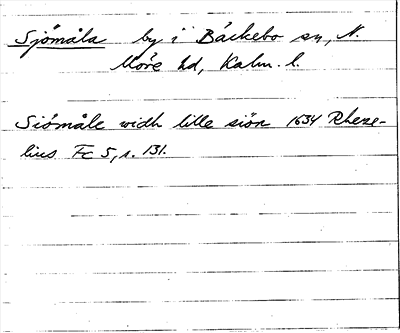 Sjömåla by i Bäckebo sn, N.
Möre hd, Kalm. l.
Siömåle widh lille siön 1634 Rheze-
lius Fc 5, s. 131.